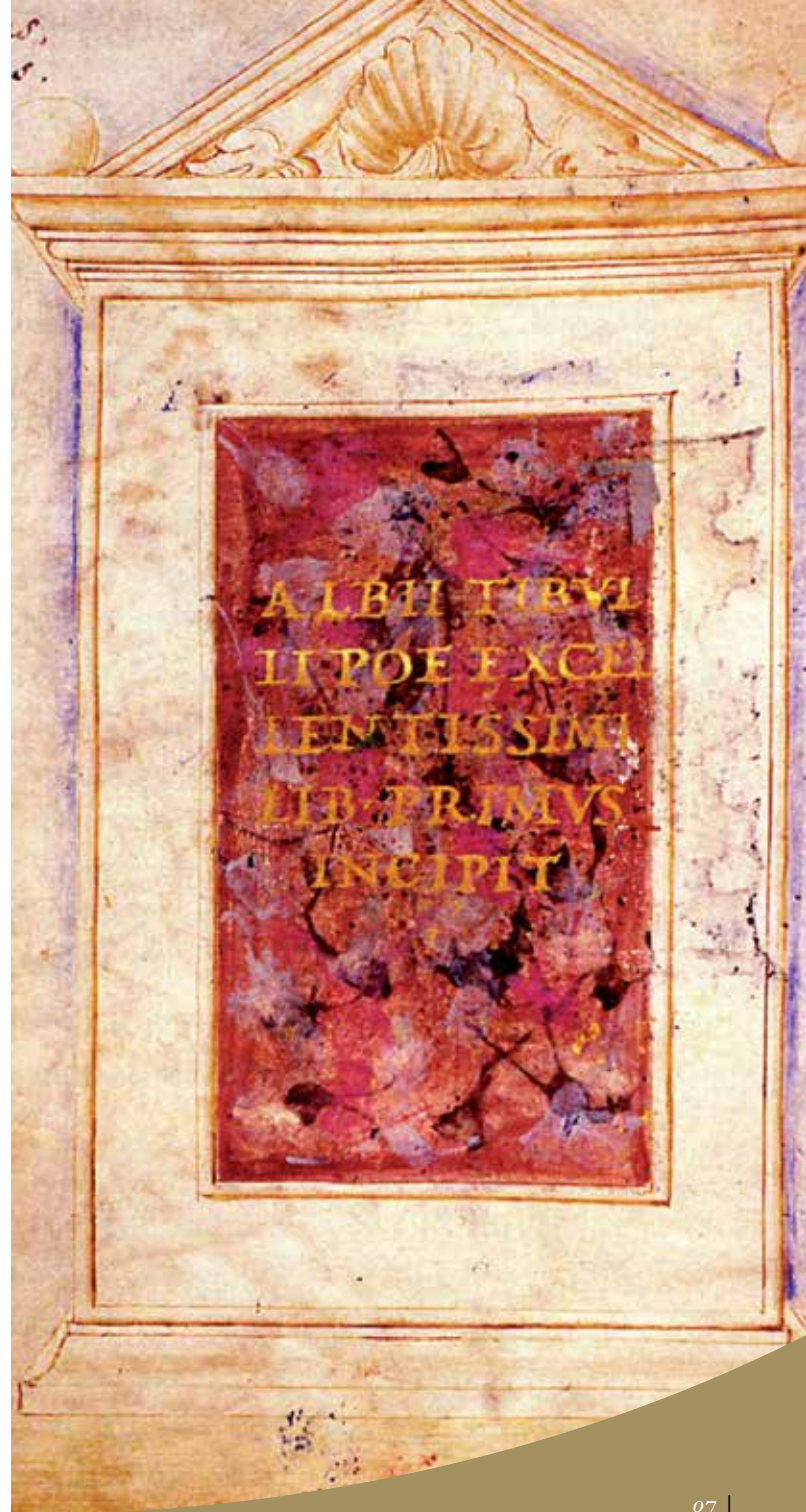 ALBII TIBVL
LI POE EXCEL
LENTISSIMI
LIB· PRIMVS
INCIPIT
07